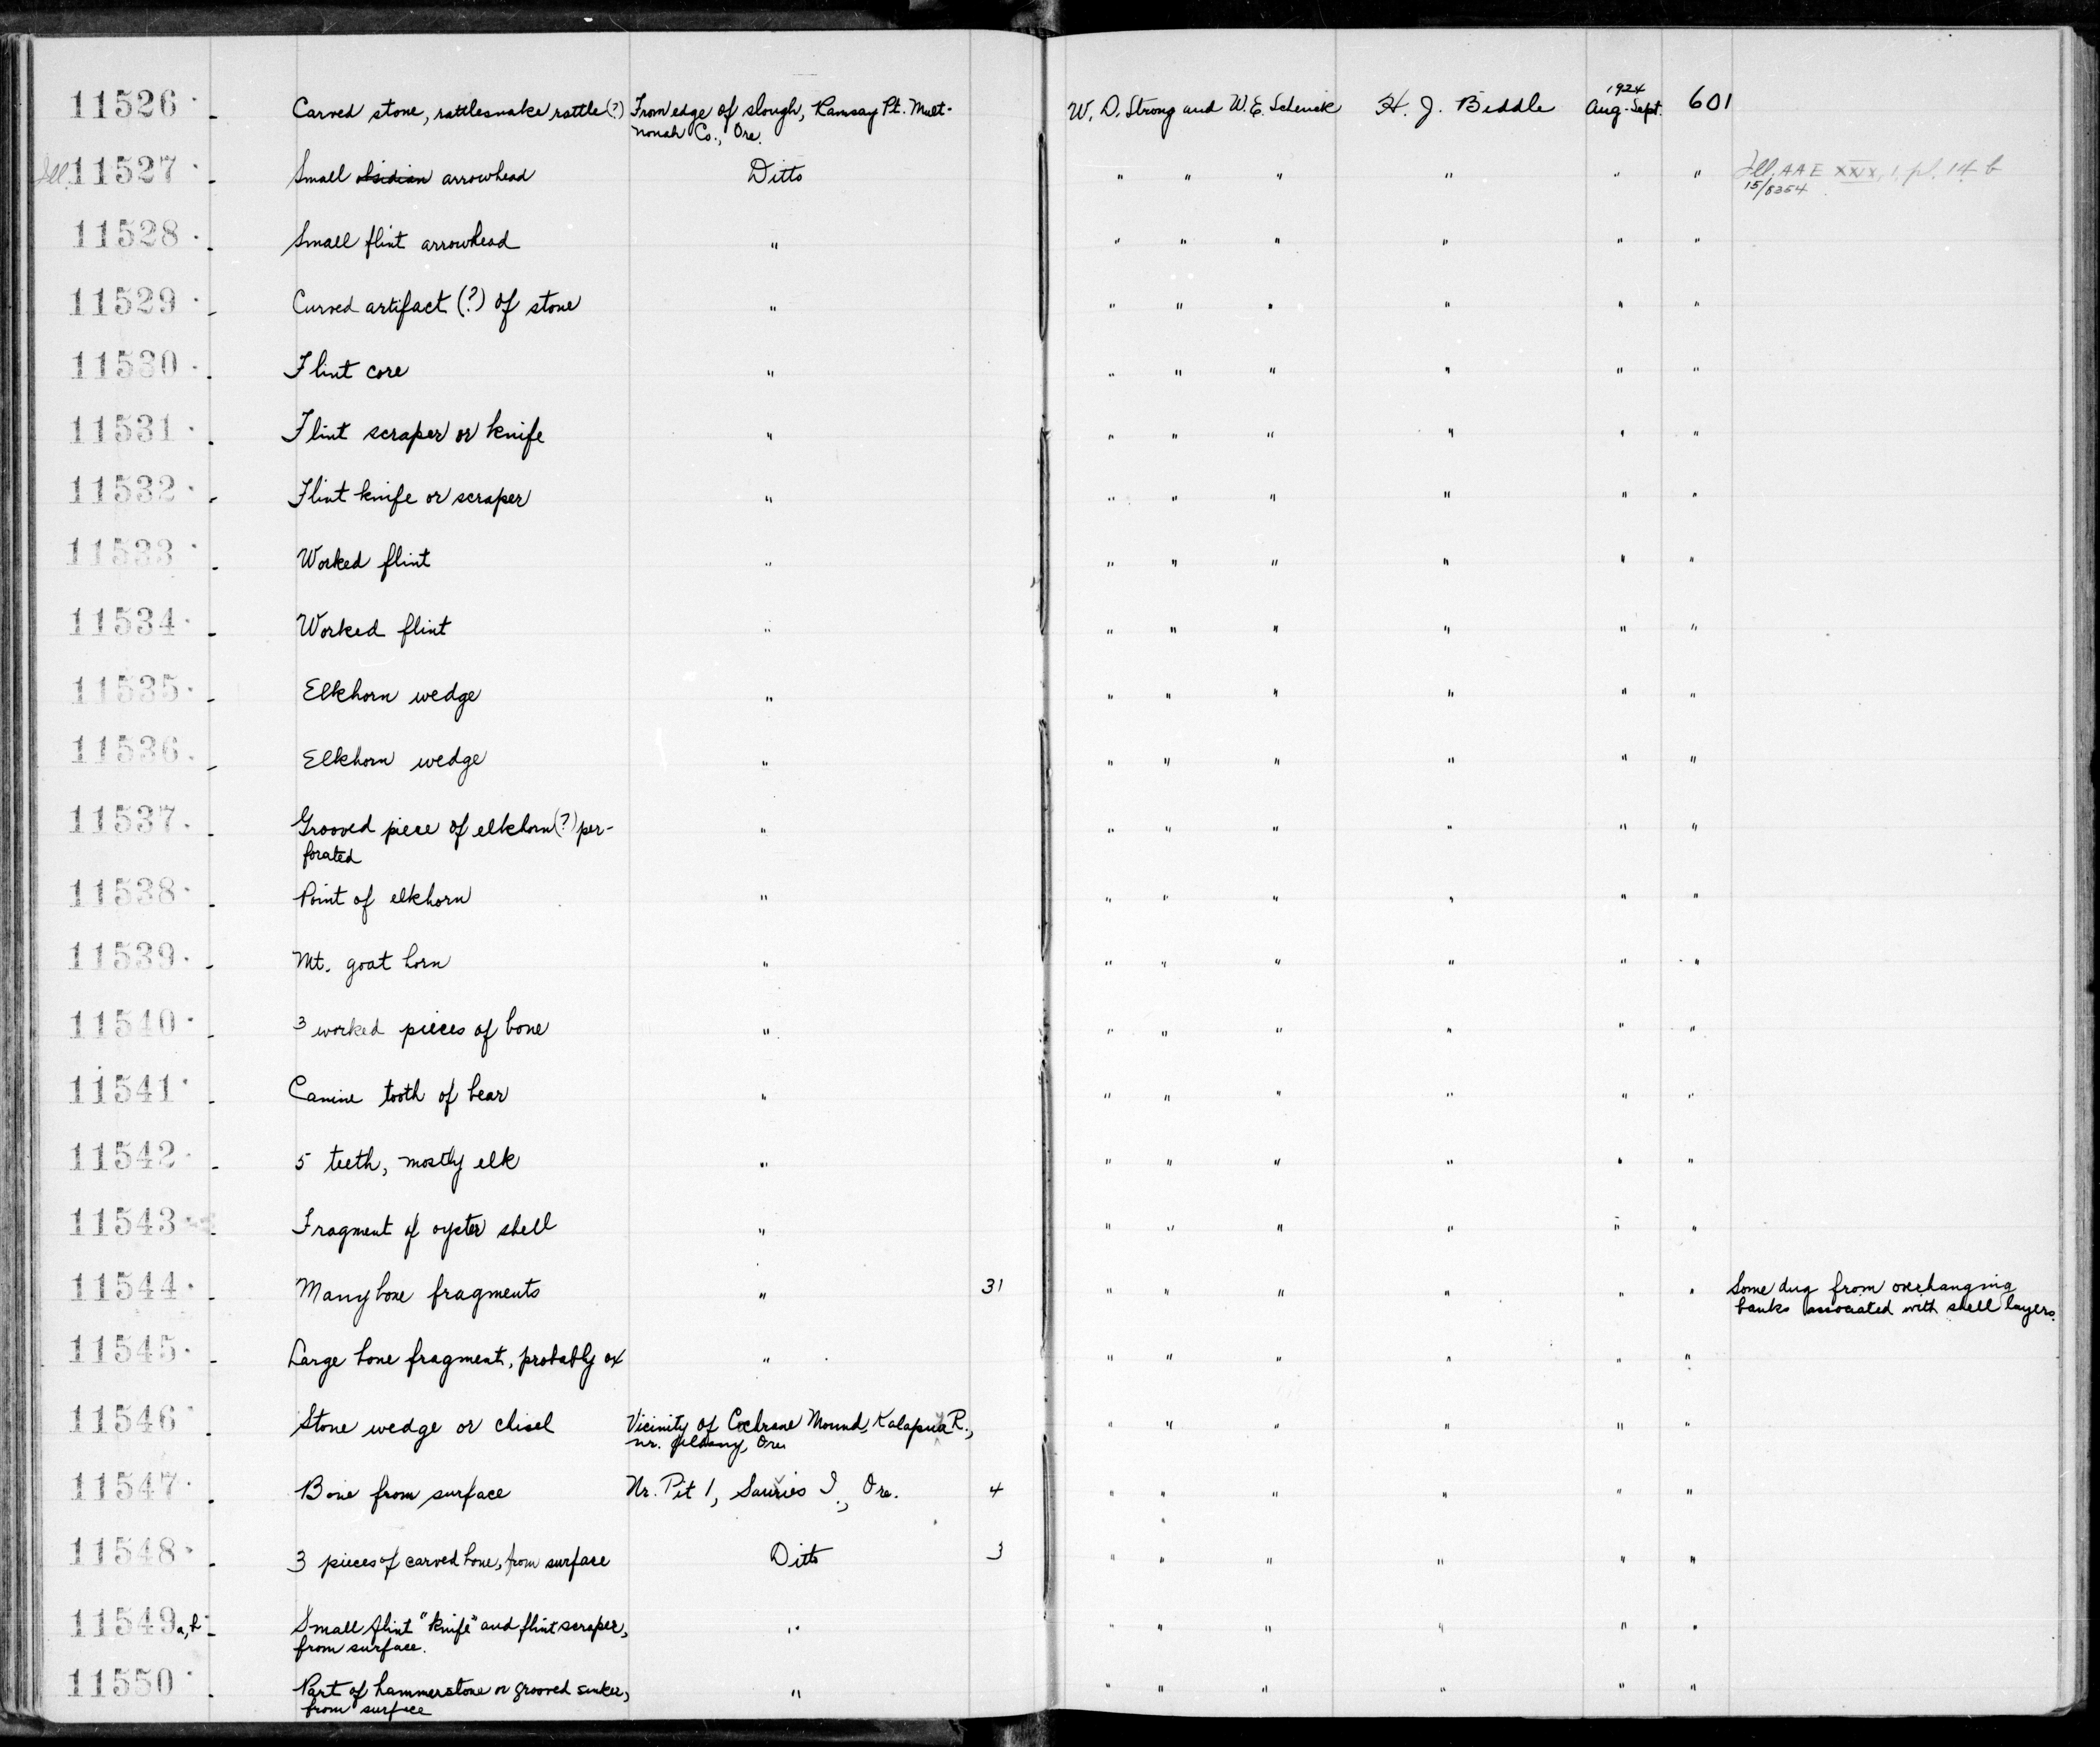 11526 Carved stone, rattlesnake rattle (?) From edge of slough, Ramsay Pt. Mult- W. D. Strong and W. E. Schenck H. J. Biddle 1924 Aug-Sept. 601
nomah Co., Ore.
Ill. 11527 Small obsidian arrowhead Ditto " " " " " " Ill. AAE XXX, 1, pl. 14 b
15/5354
11528 Small flint arrowhead " " " " " " "
11529 Curved artifact (?) of stone " " " " " " "
11530 Flint core " " " " " " "
11531 Flint scraper or knife " " " " " " "
11532 Flint knife or scraper " " " " " " "
11533 Worked flint " " " " " " "
11534 Worked flint " " " " " " "
11535 Elkhorn wedge " " " " " " "
11536 Elkhorn wedge " " " " " " "
11537 Grooved piece of elkhorn (?) per- " " " " " " "
forated
11538 Point of elkhorn " " " " " " "
11539 Mt. goat horn " " " " " " "
11540 3 worked pieces of bone " " " " " " "
11541 Canine tooth of bear " " " " " " "
11542 5 teeth, mostly elk " " " " " " "
11543 Fragment of oyster shell " " " " " " "
11544 Many bone fragments " 31 " " " " " " Some dug from overhanging
banks associated with shell layers.
11545 Large bone fragment, probably ox " " " " " " "
11546 Stone wedge or chisel Vicinity of Cochrane Mound, Kalapua R., " " " " " "
nr. Albany, Ore.
11547 Bone from surface Nr. Pit 1, Sauvies I., Ore. 4 " " " " " "
11548 3 pieces of carved bone, from surface Ditto 3 " " " " " "
11549 a, b Small flint "knife" and flint scraper, " " " " " " "
from surface.
11550 Part of hammerstone or grooved sinker, " " " " " " "
from surface